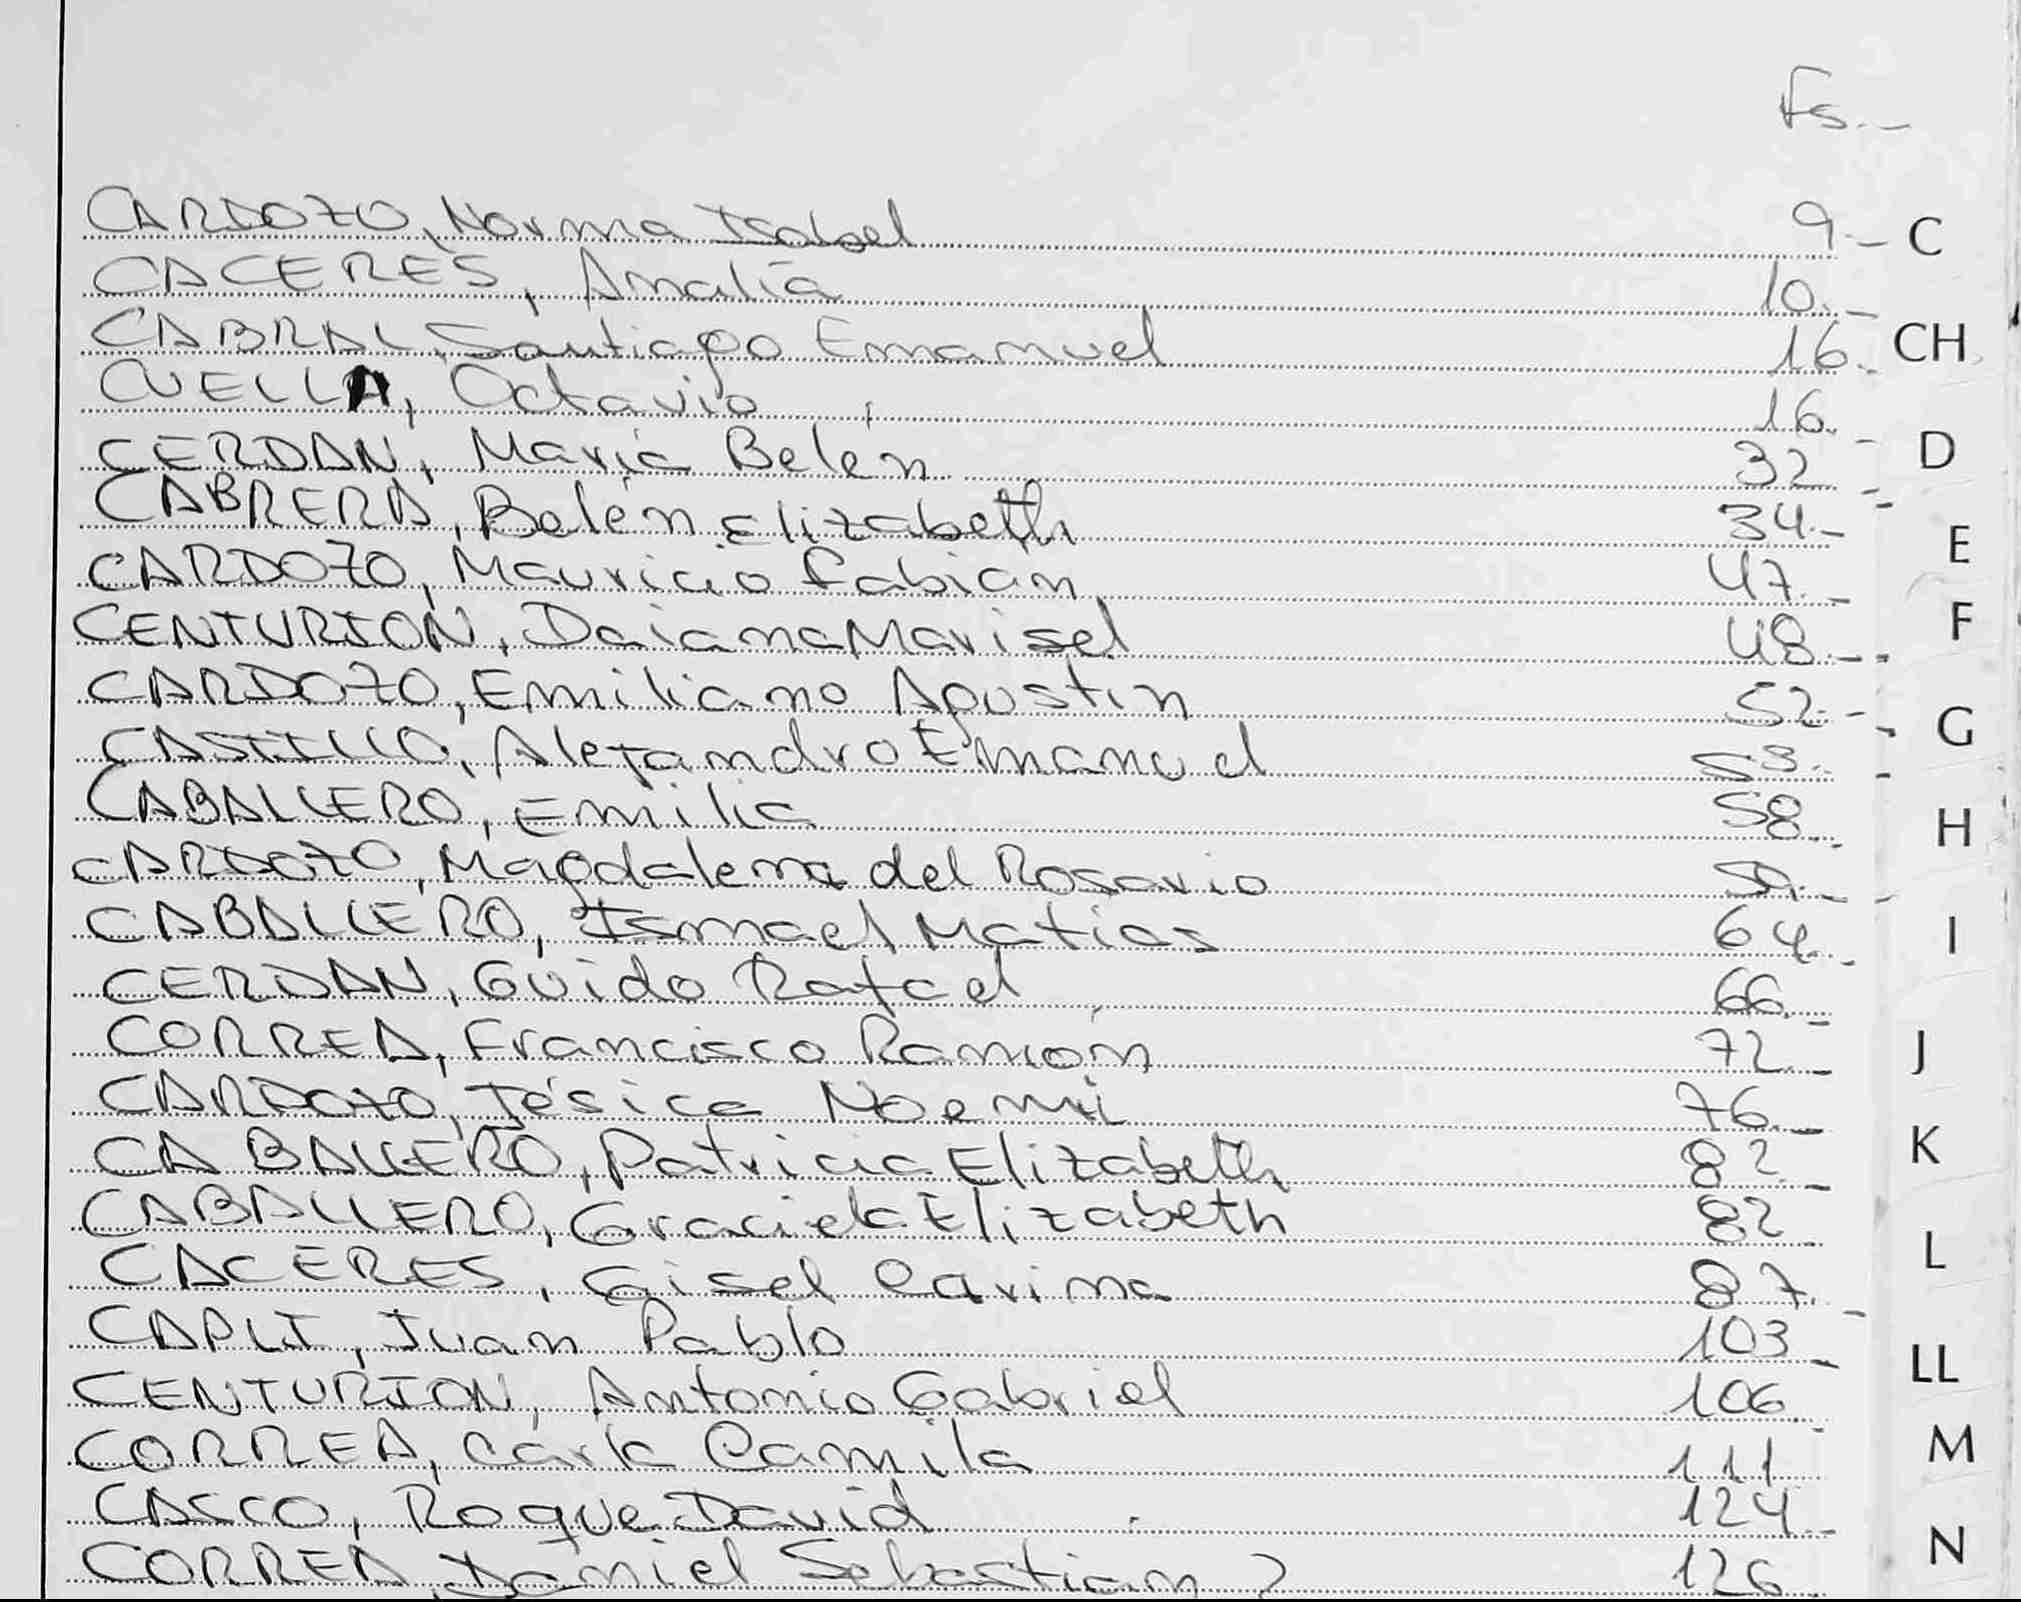 Fs.-
CARDOZO, Norma Isabel 9.- C
CACERES, Analía 10.-
CABRAL, Santiago Emanuel 16.- CH
CUELLA, Octavio 16.-
CERDAN, María Belén 32.- D
CABRERA, Belén Elizabeth 34.-
CARDOZO, Mauricio Fabian 47.- E
CENTURION, Daiana Marisel 48.- F
CARDOZO, Emiliano Agustín 52.-
CASTILLO, Alejandro Emanuel 53.- G
CABALLERO, Emilia 58.- H
CARDOZO, Magdalena del Rosario 59.-
CABALLERO, Ismael Matias 64.- I
CERDAN, Guido Rafael 66.-
CORREA, Francisco Ramon 72.- J
CARDOZO, Jésica Noemi 76.-
CABALLERO, Patricia Elizabeth 82.- K
CABALLERO, Graciela Elizabeth 82.-
CACERES, Gisel Carina 87.- L
CAPLI, Juan Pablo 103.-
CENTURION, Antonio Gabriel 106.- LL
CORREA, Carla Camila 111 M
CASCO, Roque David 124.-
CORREA, Daniel Sebastian 126 N